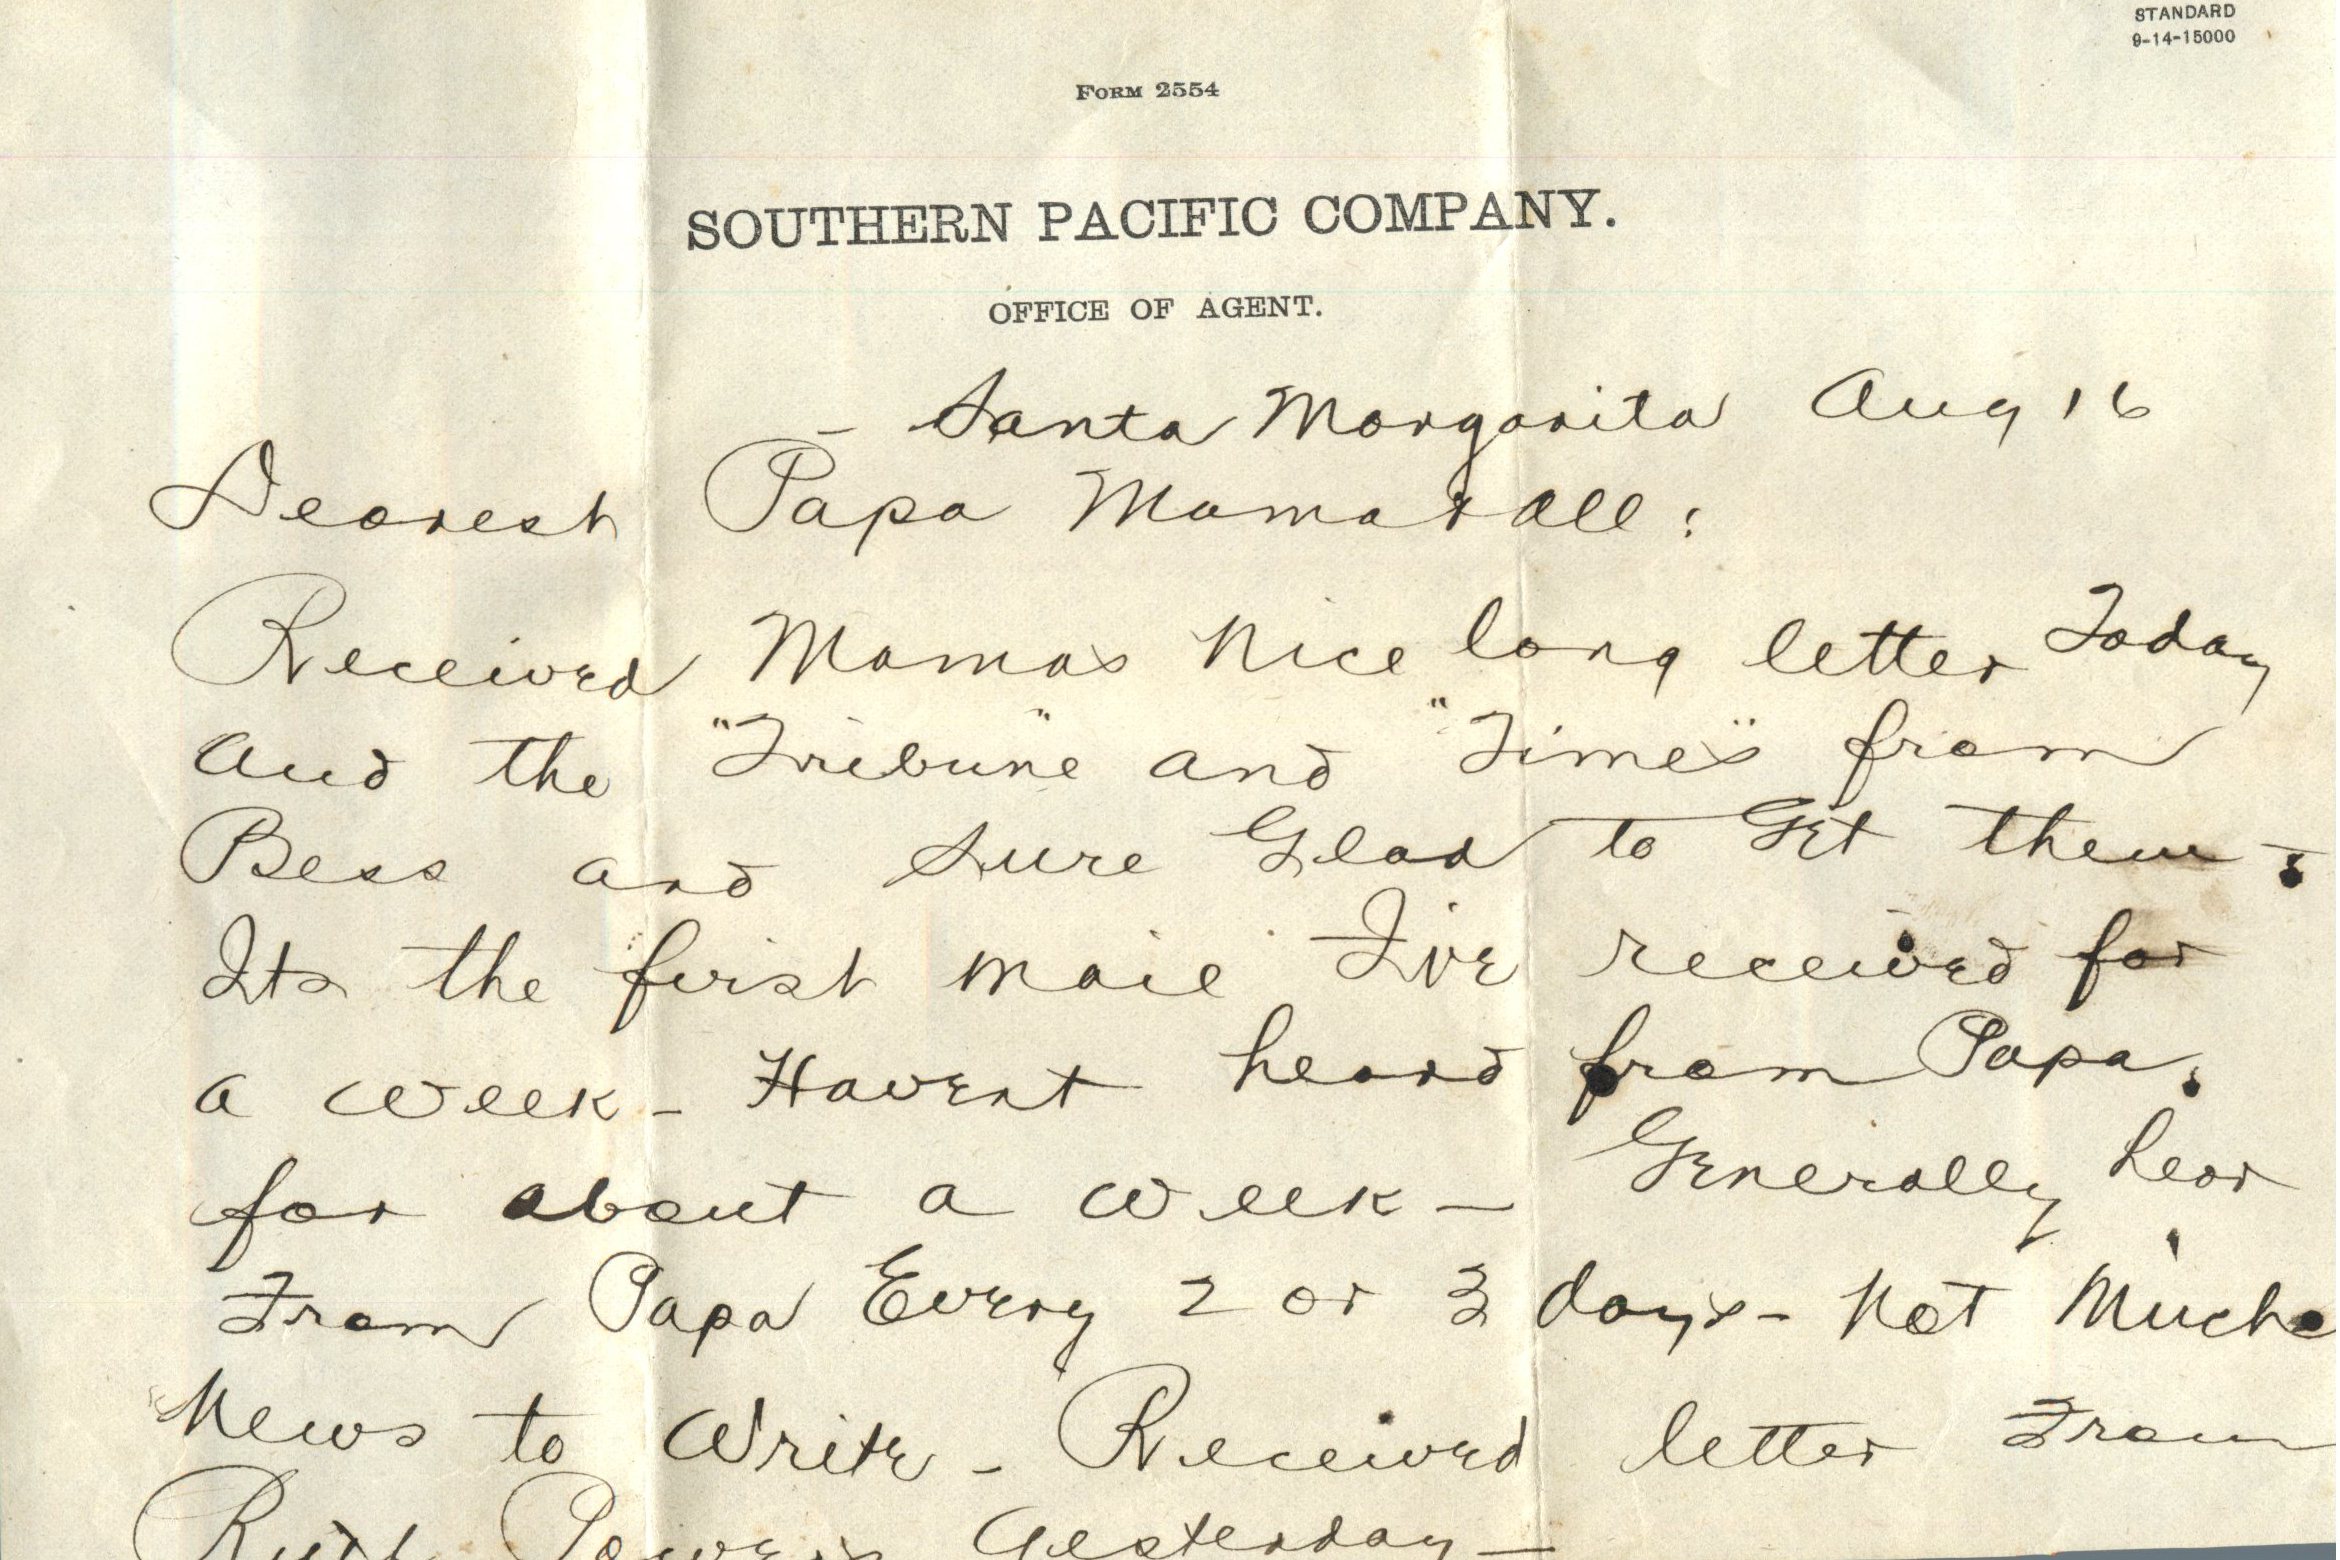 STANDARD
9-14-15000
FORM 2554
SOUTHERN PACIFIC COMPANY.
OFFICE OF AGENT.
- Santa Margarita Aug 16
Dearest Papa Mama & all:
Received Mamas Nice long letter Today
and the "Tribune" and "Times" from
Bess and Sure Glad to Get them.
Its the first mail I've received for
a week - Havent heard from Papa.
for about a week - Generally hear
From Papa Every 2 or 3 days - Not Much
News to Write - Received letter From
Ruth Powers Yesterday -